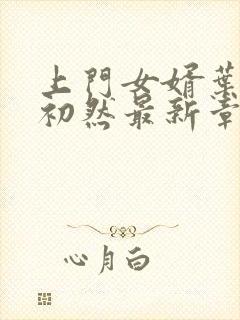 上門女婿葉
初然最新章
心月白